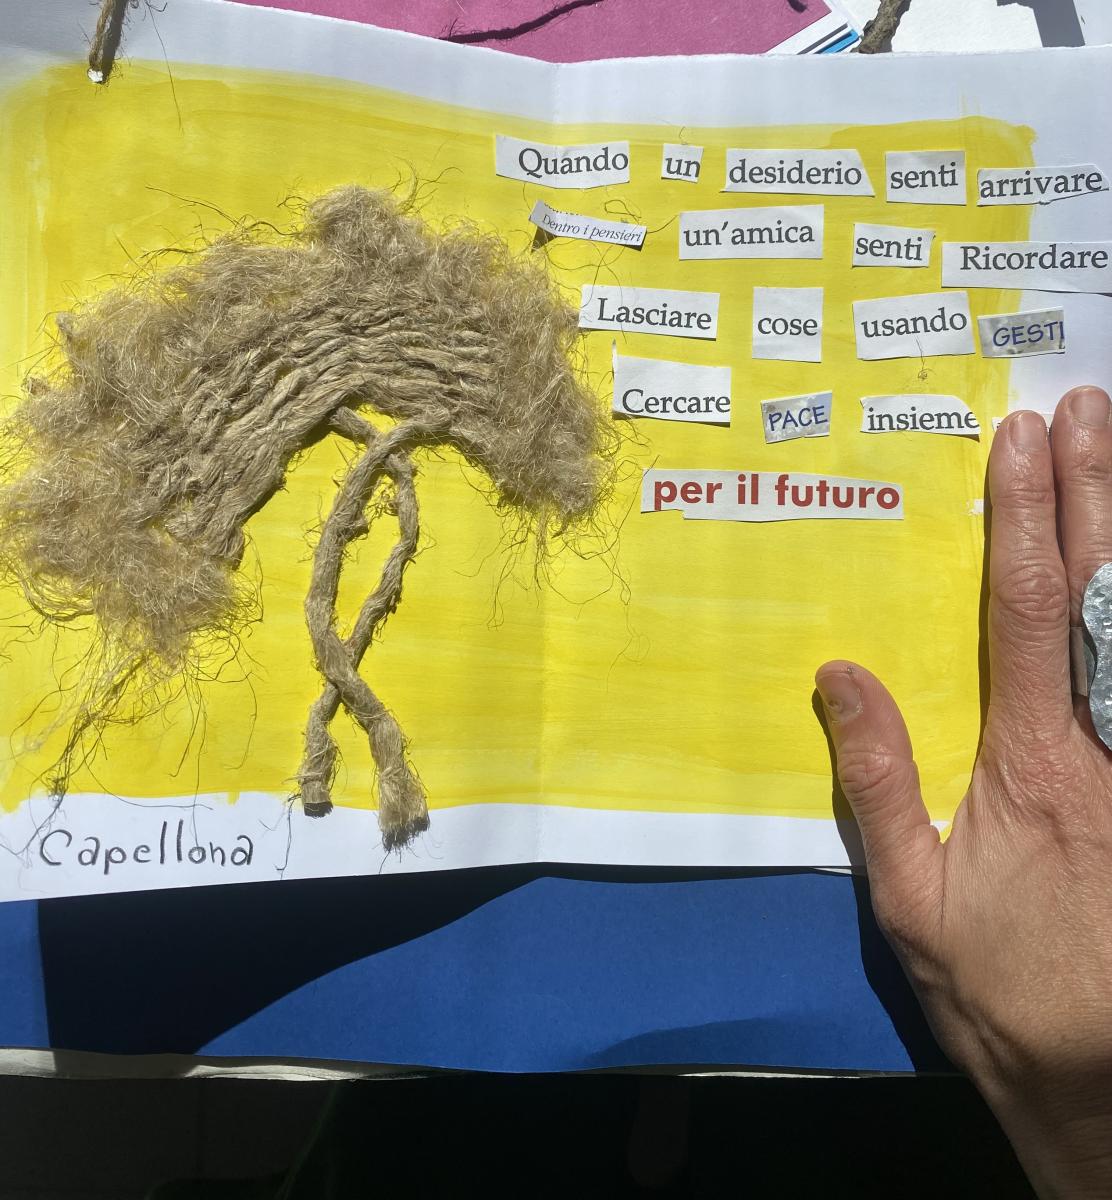 Quando un desiderio senti arrivare
Dentro i pensieri un'amica senti Ricordare
Lasciare cose usando GESTI
Cercare PACE insieme
per il futuro
Capellona